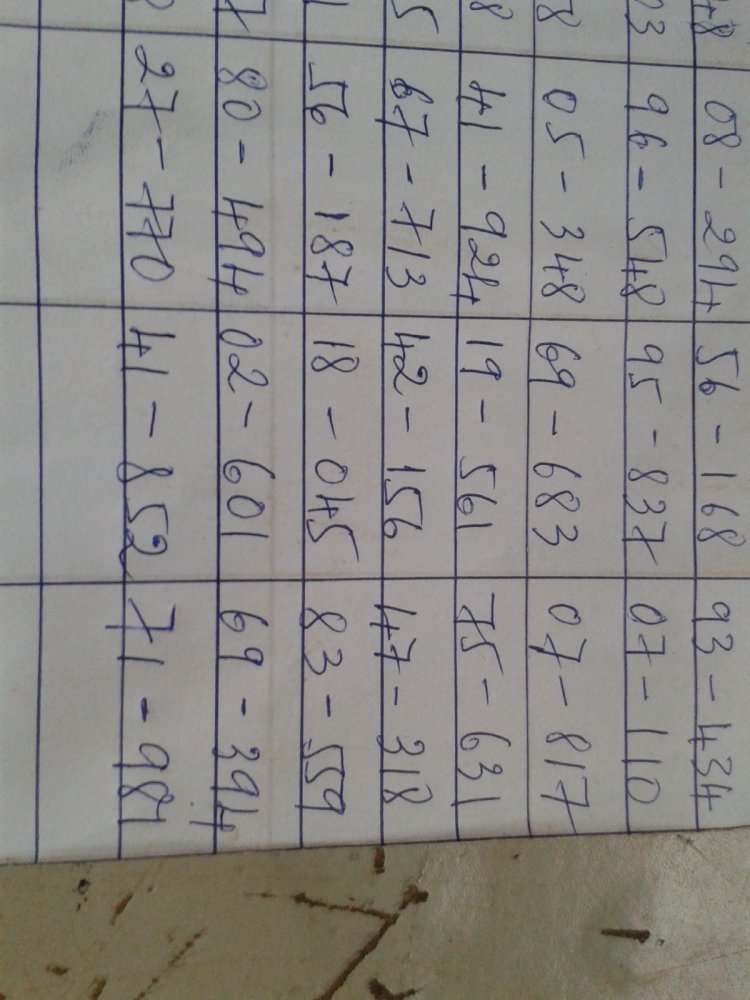 48 08-294 56-168 93-434
03 96-548 95-837 07-110
78 05-348 69-683 07-817
8 41-924 19-561 75-631
5 67-713 42-156 47-318
1 56-187 18-045 83-559
7 80-494 02-601 69-394
27-770 41-852 71-981